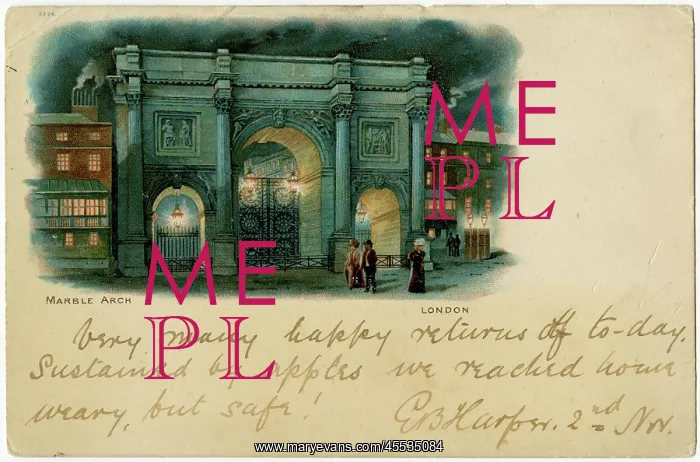 3396.
ME
PL
MARBLE ARCH
ME
PL
LONDON
Very many happy returns of to-day.
Sustained by apples we reached home
weary, but safe!
GBHarper. 2nd Nov.
www.maryevans.com/45535084